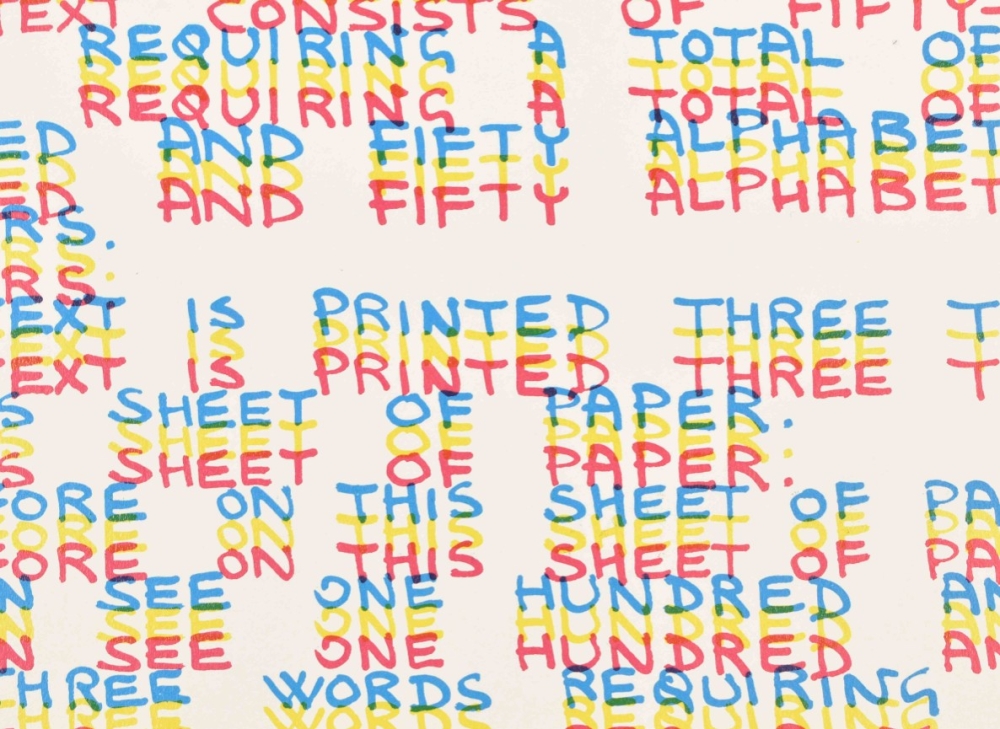 TEXT CONSISTS OF FIFTY-
REQUIRING A TOTAL OF
REQUIRING A TOTAL OF
REQUIRING A TOTAL OF
ED AND FIFTY ALPHABET
ED AND FIFTY ALPHABET
ED AND FIFTY ALPHABET
RS.
RS.
RS.
EXT IS PRINTED THREE T
EXT IS PRINTED THREE T
EXT IS PRINTED THREE T
S SHEET OF PAPER.
S SHEET OF PAPER.
S SHEET OF PAPER.
FORE ON THIS SHEET OF PA
FORE ON THIS SHEET OF PA
FORE ON THIS SHEET OF PA
N SEE ONE HUNDRED AN
N SEE ONE HUNDRED AN
N SEE ONE HUNDRED AN
HREE WORDS REQUIRING
HREE WORDS REQUIRING